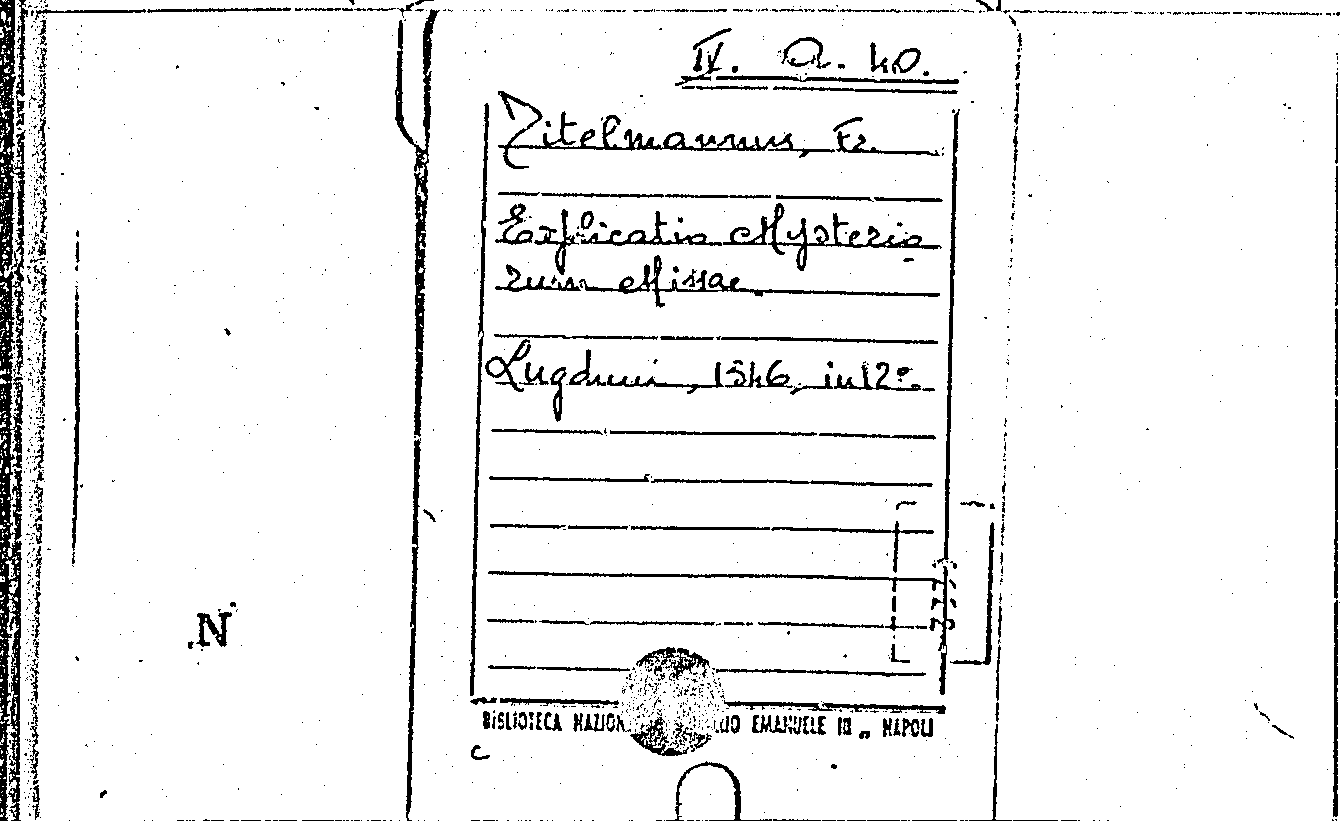 IV. Q. 40.
Titelmannus, Fr.
Explicatio Mysterio
rum Missae.
Lugduni, 1546, in 12º.
N
BIBLIOTECA NAZION EMANUELE III „ NAPOLI
C